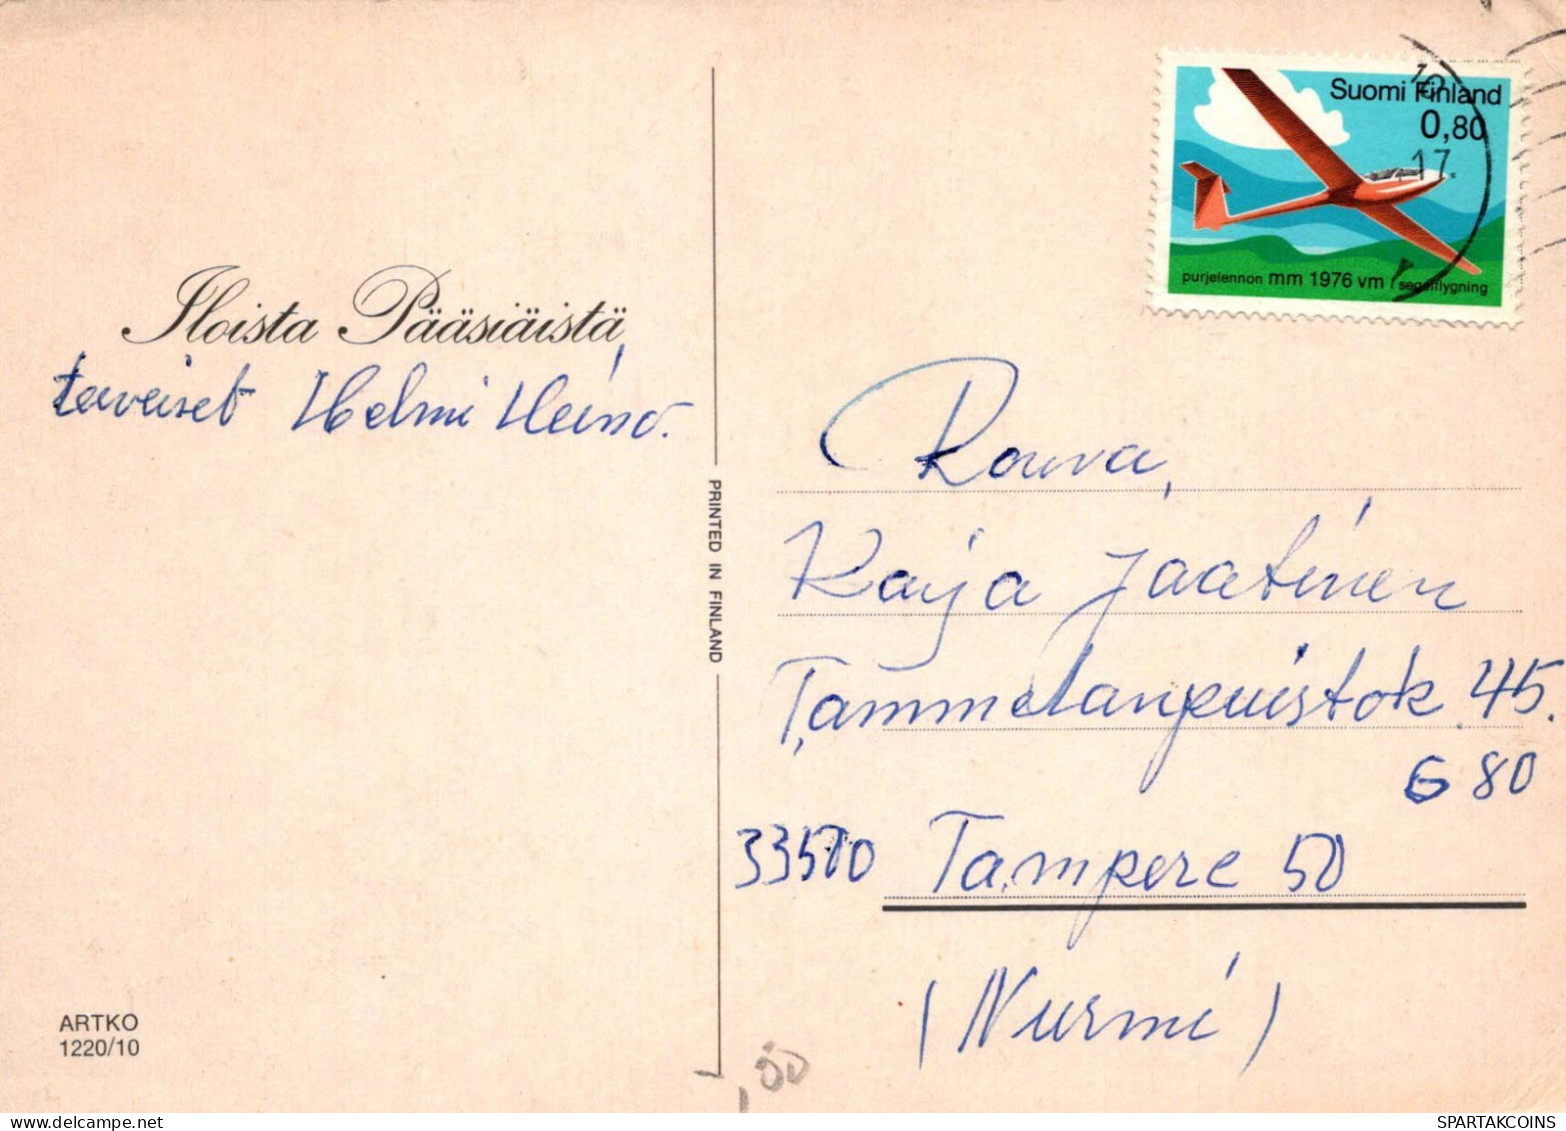 Suomi Finland
0,80
17.
purjelennon mm 1976 vm i segelflygning
Iloista Pääsiäistä
terveiset Helmi Heino.
PRINTED IN FINLAND
Rouva,
Kaija Jaatinen
Tammelanpuistok. 45.
G 80
33500 Tampere 50
(Nurmi)
ARTKO
1220/10
SPARTAKCOINS